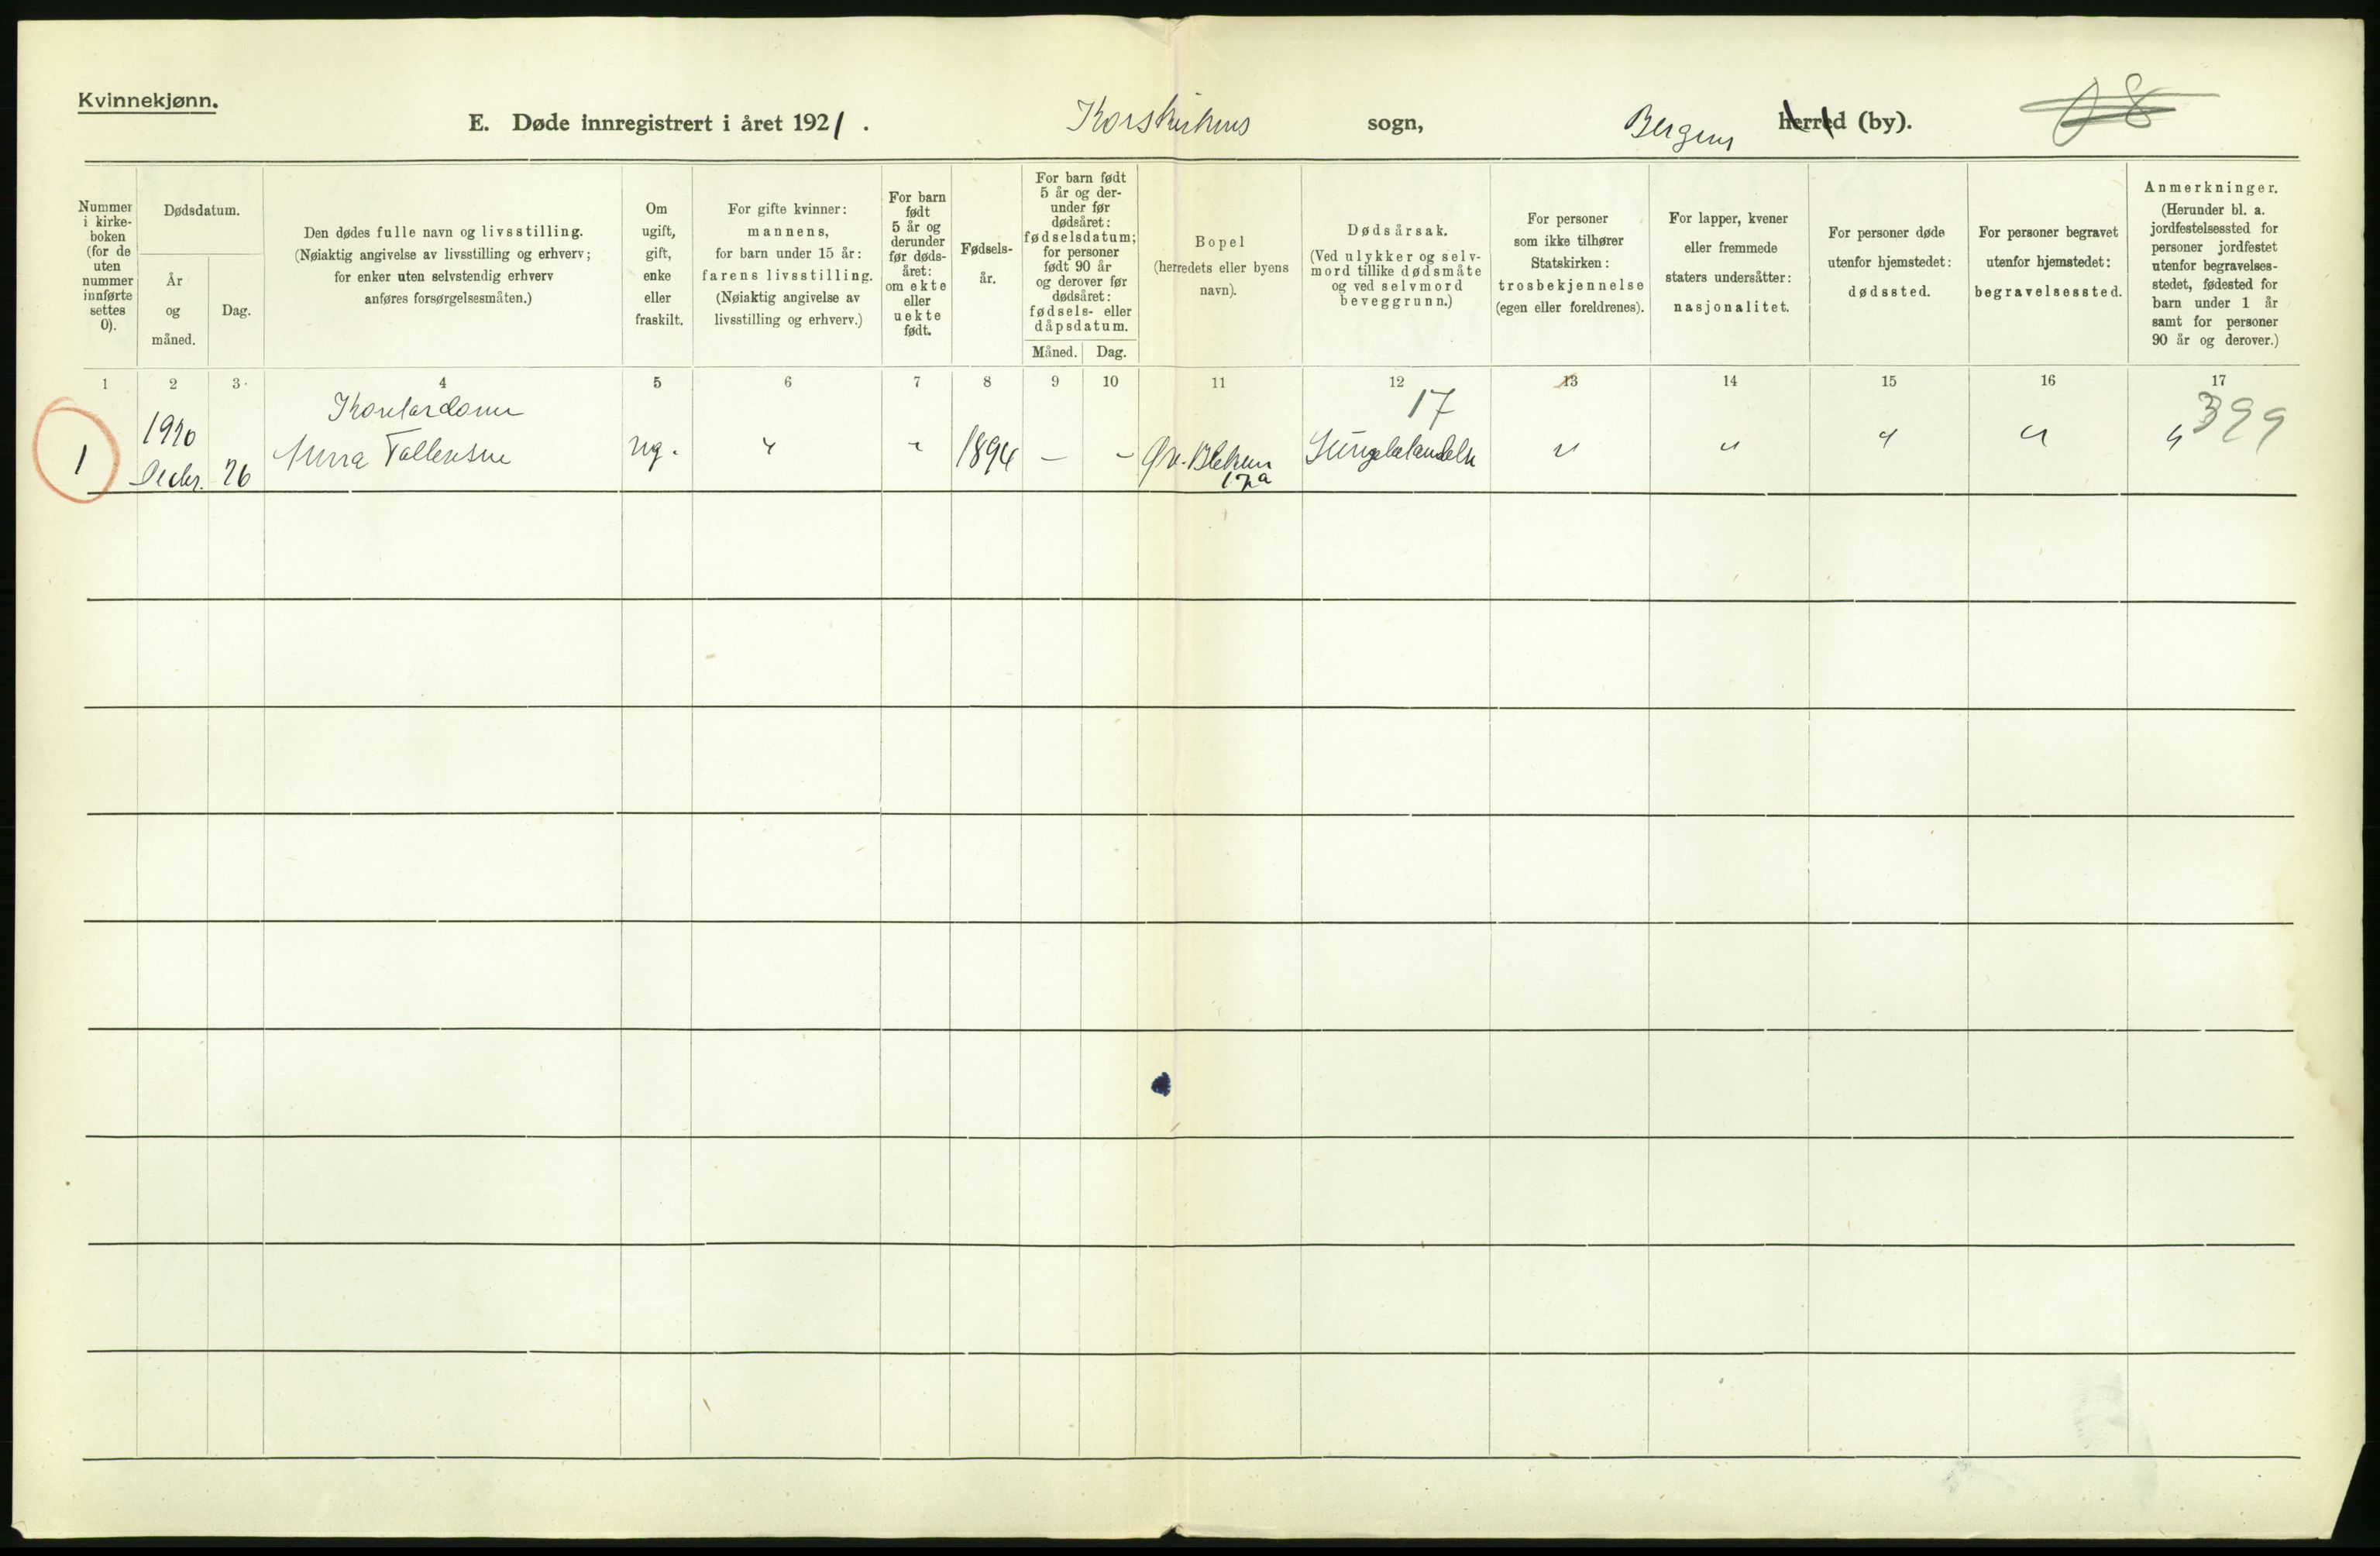 Kvinnekjønn.
E. Døde innregistrert i året 1921.
Korskirkens sogn,
Bergens herred (by).
Nummer
i kirke-
boken
(for de
uten
nummer
innførte
settes
0).
Dødsdatum.
År
og
måned.
Dag.
Den dødes fulle navn og livsstilling.
(Nøiaktig angivelse av livsstilling og erhverv;
for enker uten selvstendig erhverv
anføres forsørgelsesmåten.)
Om
ugift,
gift,
enke
eller
fraskilt.
For gifte kvinner:
mannens,
for barn under 15 år:
farens livsstilling.
(Nøiaktig angivelse av
livsstilling og erhverv.)
For barn
født
5 år og
derunder
før døds-
året:
om ekte
eller
uekte
født.
Fødsels-
år.
For barn født
5 år og der-
under før
dødsåret:
fødselsdatum;
for personer
født 90 år
og derover før
dødsåret:
fødsels- eller
dåpsdatum.
Måned. Dag.
Bopel
(herredets eller byens
navn).
Dødsårsak.
(Ved ulykker og selv-
mord tillike dødsmåte
og ved selvmord
beveggrunn.)
For personer
som ikke tilhører
Statskirken:
trosbekjennelse
(egen eller foreldrenes).
For lapper, kvener
eller fremmede
staters undersåtter:
nasjonalitet.
For personer døde
utenfor hjemstedet:
dødssted.
For personer begravet
utenfor hjemstedet:
begravelsessted.
Anmerkninger.
(Herunder bl. a.
jordfestelsessted for
personer jordfestet
utenfor begravelses-
stedet, fødested for
barn under 1 år
samt for personer
90 år og derover.)
1 2 3 4 5 6 7 8 9 10 11 12 13 14 15 16 17
1
1920
Decbr. 26
Kontordame
Anna Tollefsen
ug. " " 1894 — –
Øv. Blekev.
17a
17
" " " " "
399